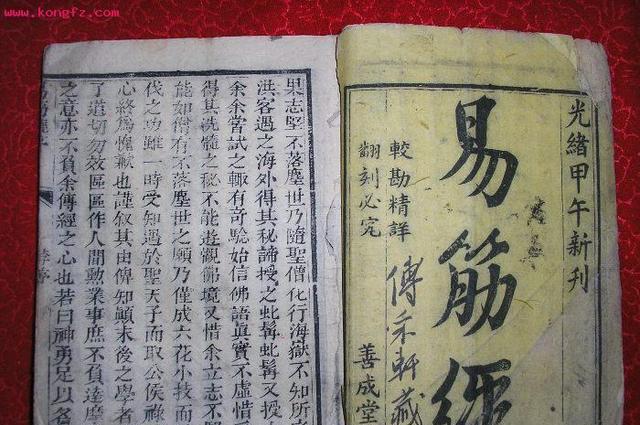 www.kongfz.com
光緒甲午新刊
易筋經
較勘精詳
翻刻必究
善成堂
果志堅不落塵世乃隨聖僧化行海嶽不知所
洪客遇之海外得其秘諦授之虬髯虬髯又授
余余嘗試之輒有奇驗始信佛語真實不虛惜
得其洗髓之秘不能遊觀佛境又惜余立志不堅
能如僧有不落塵世之願乃僅成六花小技而
伐之功雖一時受知遇於聖天子而取公侯祿
心終為愧歉也謹叙其由俾知顛末後之學者
了道切勿效區區作人間勲業事庶不負達摩
之意亦不負余傳經之心也若曰神勇足以名